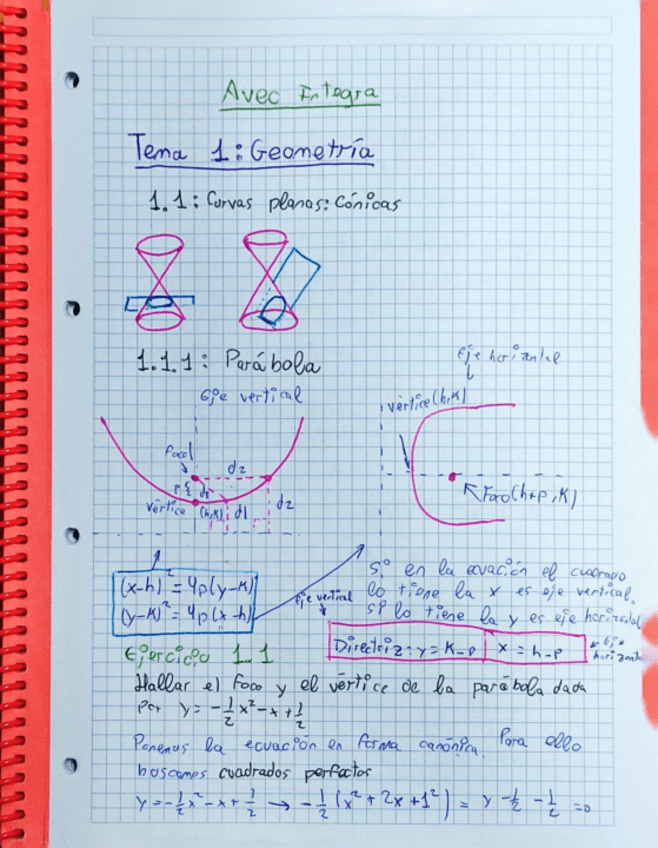 Avec Integra
Tema 1: Geometría
1.1: Curvas planas: Cónicas
1.1.1: Parábola
Eje horizontal
Eje vertical
vértice (h,K)
Foco
d2
P
d1
d2
vértice
(h,K)
d1
Foco (h+p, K)
(x-h)² = 4p(y-K)
(y-K)² = 4p(x-h)
Si en la ecuación el cuadrado
lo tiene la x es eje vertical.
si lo tiene la y es eje horizontal
Eje vertical
Directriz: y = K-p | x = h-p
Eje
horizontal
Ejercicio 1.1
Hallar el foco y el vértice de la parábola dada
por y = -1/2 x² - x + 1/2
Ponemos la ecuación en forma canónica. Para ello
buscamos cuadrados perfectos
y = -1/2 x² - x + 1/2 → -1/2 (x² + 2x + 1²) = y - 1/2 - 1/2 = 0